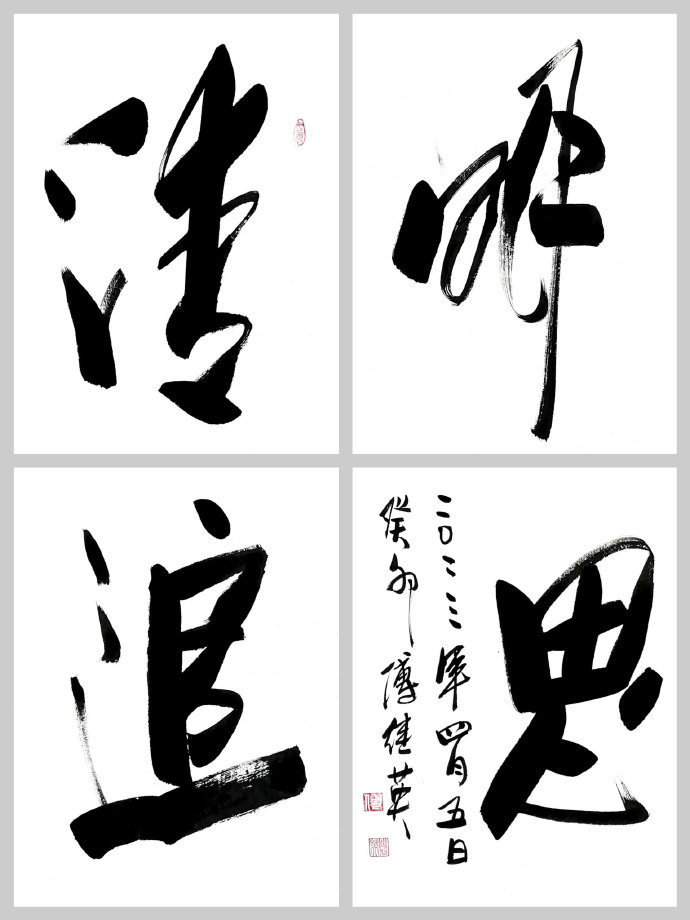 清
明
追
思
二〇二三年四月五日
癸卯 傅